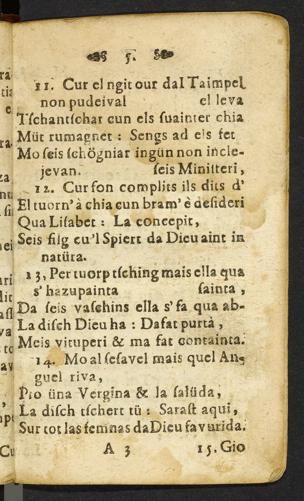 5.
11. Cur el ngit our dal Taimpel
non pudeival el leva
Tschantschar cun els suainter chia
Müt rumagnet: Sengs ad els fet
Mo seis schögniar ingün non incle-
jevan. seis Ministeri,
12. Cur son complits ils dits d'
El tuorn' à chia cun bram' è desideri
Qua Lisabet: La concepit,
Seis filg cu'l Spiert da Dieu aint in
natüra.
13, Per tuorp tsching mais ella qua
s'hazupainta sainta,
Da seis vaschins ella s'fa qua ab-
La disch Dieu ha: Dafat purtà,
Meis vituperi & ma fat containta.
14. Mo al sesavel mais quel An-
guel riva,
Pro üna Vergina & la salüda,
La disch tschert tü: Sarast aqui,
Sur tot las femnas da Dieu favurida.
A 3 15. Gio